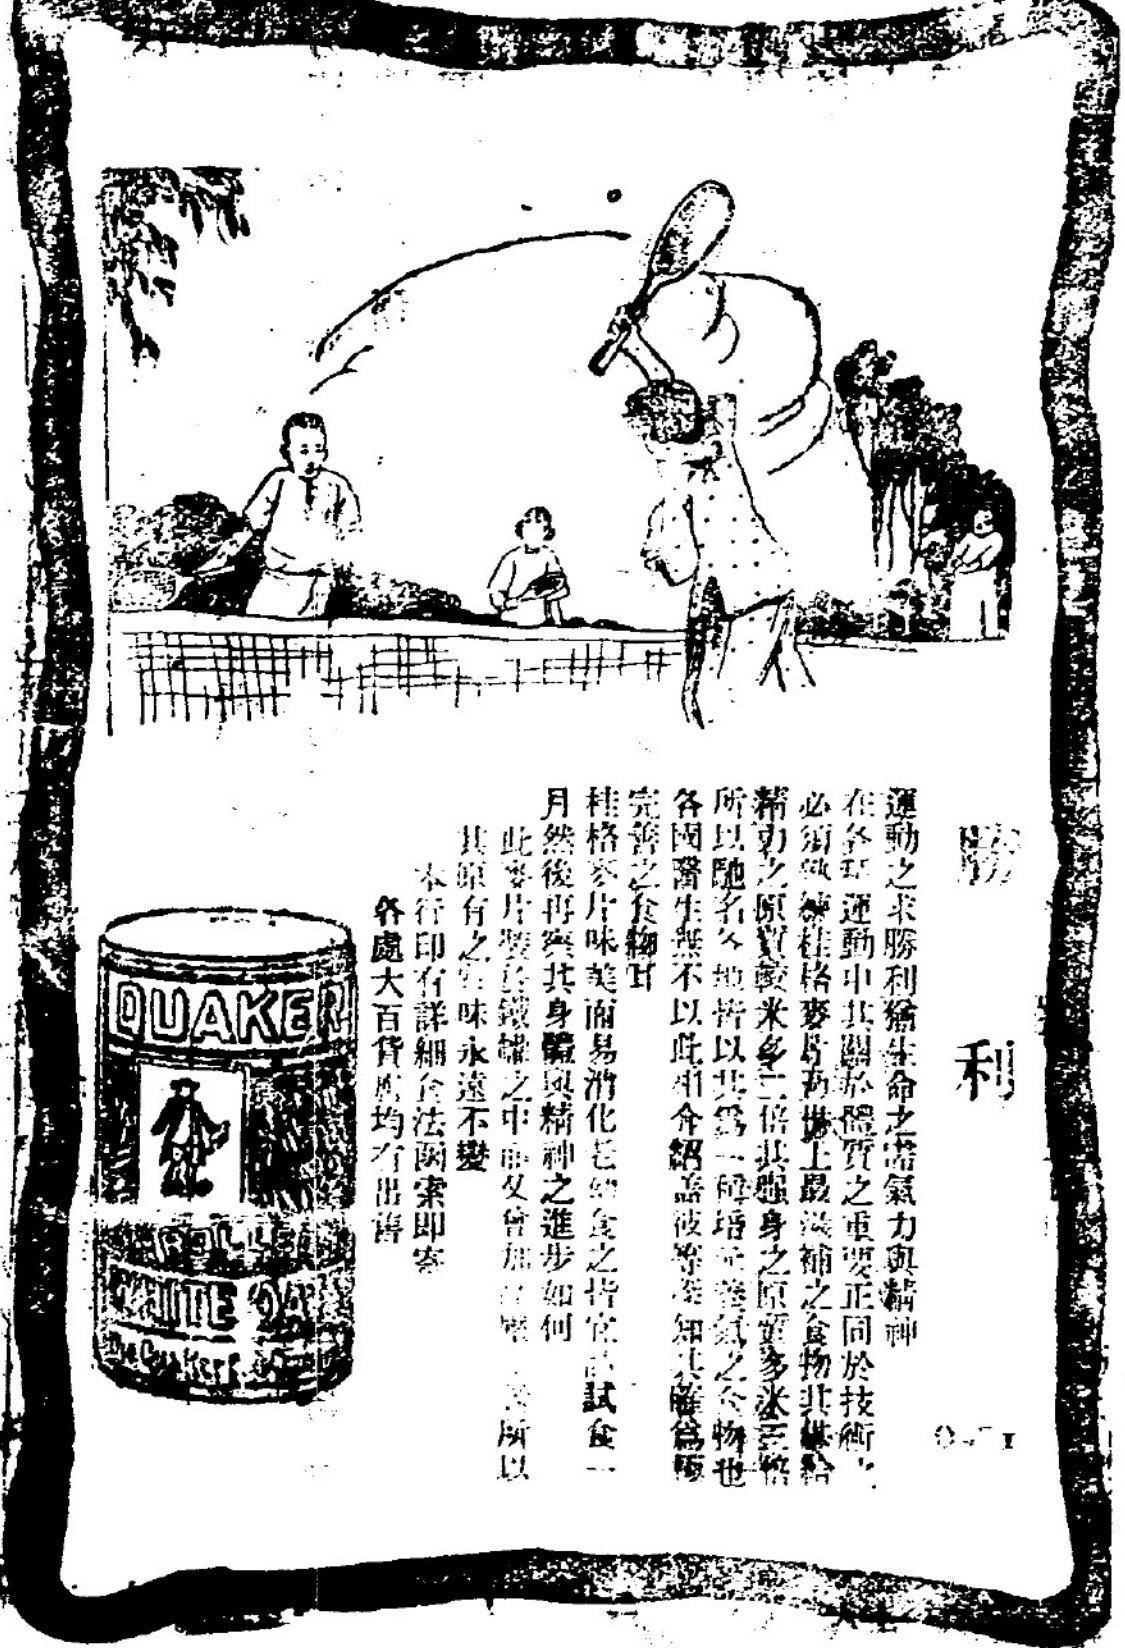 勝利
運動之求勝利猶生命之需氣力與精神
在各項運動中其關於體質之重要正同於技術
必須熟練桂格麥片為世上最滋補之食物其供給
精力之原質較米多二倍其強身之原質多米三倍
所以馳名各地皆以其為一種培元養氣之食物也
各國醫生無不以此相介紹蓋彼等深知其確為極
完善之食物耳
桂格麥片味美而易消化老幼食之皆宜試食一
月然後再察其身體與精神之進步如何
此麥片裝於鐵罐之中而又曾加 所以
其原有之 味永遠不變
本行印有詳細食法函索即寄
各處大百貨店均有出售
QUAKER
ROLLED
WHITE OA
The Quaker